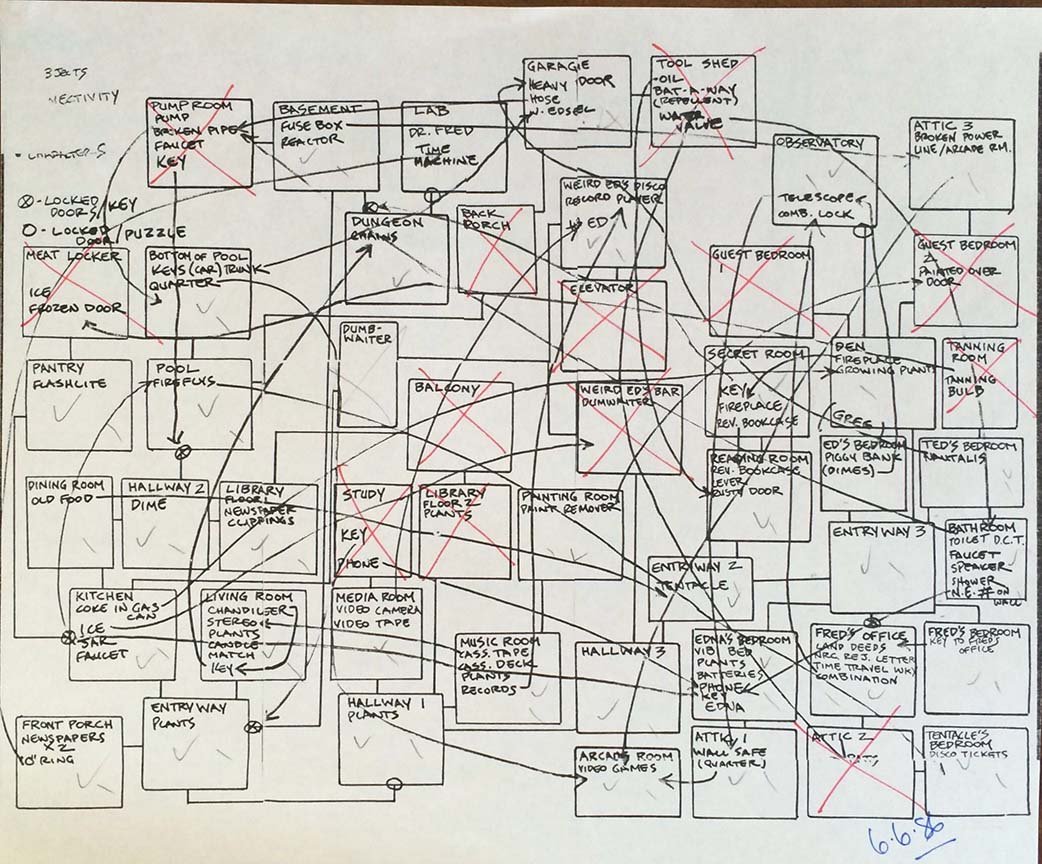 3JECTS
NECTIVITY
GARAGE
HEAVY DOOR
HOSE
N. EDSEL
TOOL SHED
OIL
BAT-A-WAY
(REPELLENT)
WATER
VALVE
PUMP ROOM
PUMP
BROKEN PIPE
FAUCET
KEY
BASEMENT
FUSE BOX
REACTOR
LAB
DR. FRED
TIME
MACHINE
OBSERVATORY
TELESCOPE
COMB. LOCK
ATTIC 3
BROKEN POWER
LINE/ARCADE RM.
- LOCKED
DOORS/KEY
- LOCKED
DOOR/PUZZLE
WEIRD ED'S DISCO
RECORD PLAYER
ED
DUNGEON
CHAINS
BACK
PORCH
MEAT LOCKER
ICE
FROZEN DOOR
BOTTOM OF POOL
KEYS (CAR) TRUNK
QUARTER
GUEST BEDROOM
1
GUEST BEDROOM
2
PAINTED OVER
DOOR
ELEVATOR
DUMB-
WAITER
PANTRY
FLASHLITE
POOL
BALCONY
WEIRD ED'S BAR
DUMWAITER
SECRET ROOM
KEY
FIREPLACE
REV. BOOKCASE
DEN
FIREPLACE
GROWING PLANTS
(GREG)
TANNING
ROOM
TANNING
BULB
ED'S BEDROOM
PIGGY BANK
(DIMES)
TED'S BEDROOM
NAUTALIS
READING ROOM
REV. BOOKCASE
LEVER
RUSTY DOOR
DINING ROOM
OLD FOOD
HALLWAY 2
DIME
LIBRARY
FLOOR 1
NEWSPAPER
CLIPPINGS
STUDY
KEY
PHONE
LIBRARY
FLOOR 2
PLANTS
PAINTING ROOM
PAINT REMOVER
ENTRY WAY 3
BATHROOM
TOILET D.C.T.
FAUCET
SPEAKER
SHOWER
N.E. # ON
WALL
ENTRY WAY 2
TENTACLE
KITCHEN
COKE IN GAS
CAN
ICE
JAR
FAUCET
LIVING ROOM
CHANDILIER
STEREO
PLANTS
CANDLE
MATCH
KEY
MEDIA ROOM
VIDEO CAMERA
VIDEO TAPE
MUSIC ROOM
CASS. TAPE
CASS. DECK
PLANTS
RECORDS
HALLWAY 3
EDNA'S BEDROOM
VIB BED
PLANTS
BATTERIES
PHONE
KEY
EDNA
FRED'S OFFICE
LAND DEEDS
NRC REJ. LETTER
TIME TRAVEL
COMBINATION
FRED'S BEDROOM
KEY TO FRED'S
OFFICE
ENTRY WAY
PLANTS
HALLWAY 1
PLANTS
FRONT PORCH
NEWSPAPERS
X2
"O" RING
ARCADE ROOM
VIDEO GAMES
ATTIC 1
WALL SAFE
(QUARTER)
ATTIC 2
TENTACLE'S
BEDROOM
DISCO TICKETS
6.6.86